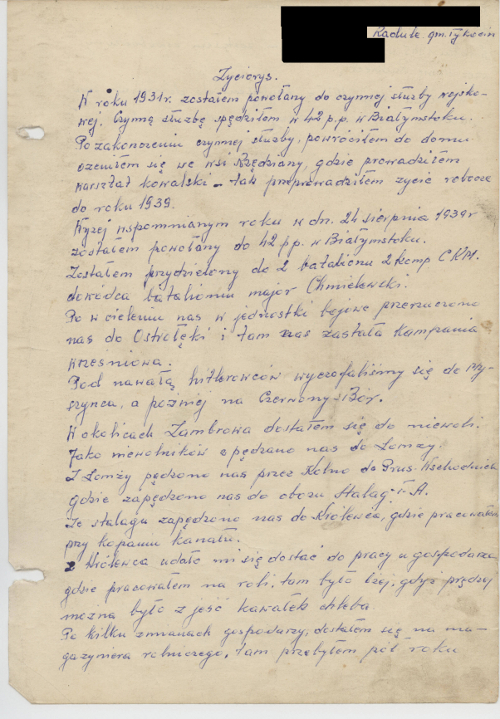 Radule gm. Tykocin
Życiorys.
W roku 1931r. zostałem powołany do czynnej służby wojsko-
wej. Czynną służbę spędziłem w 42 p.p. w Białymstoku.
Po zakończeniu czynnej służby, powróciłem do domu
ożeniłem się we wsi Rzędziany, gdzie prowadziłem
warsztat kowalski - tak przeprowadziłem życie robocze
do roku 1939.
Wyżej wspomnianym roku w dn. 24 sierpnia 1939r
zostałem powołany do 42 p.p. w Białymstoku.
Zostałem przydzielony do 2 batalionu 2 komp CKM.
dowódca batalionu major Chmielewski.
Po wcieleniu nas w jednostki bojowe przerzucono
nas do Ostrołęki i tam nas zastała Kampania
wrześniowa.
Pod nawałą hitlerowców wycofaliśmy się do
a później na Czerwony-Bór.
W okolicach Zambrowa dostałem się do niewoli.
Jako niewolników spędzano nas do Łomży.
Z Łomży pędzono nas przez Kolno do Prus. Wschodnich
gdzie zapędzono nas do obozu Stalag I-A.
Ze stalagu zapędzono nas do Królewca, gdzie pracowałem
przy kopaniu kanału.
z Królewca udało mi się dostać do pracy u gospodarza
gdzie pracowałem na roli, tam było lżej, gdyż prędzej
można było zjeść kawałek chleba
Po kilku zmianach gospodarzy, dostałem się na ma-
gazyniera rolniczego, tam przebyłem pół roku